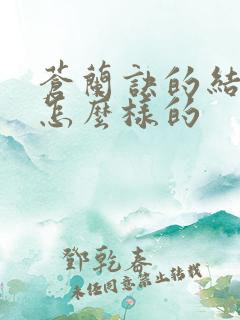 蒼蘭訣的結
怎麼樣的
鄧乾春
未任同意禁止转载